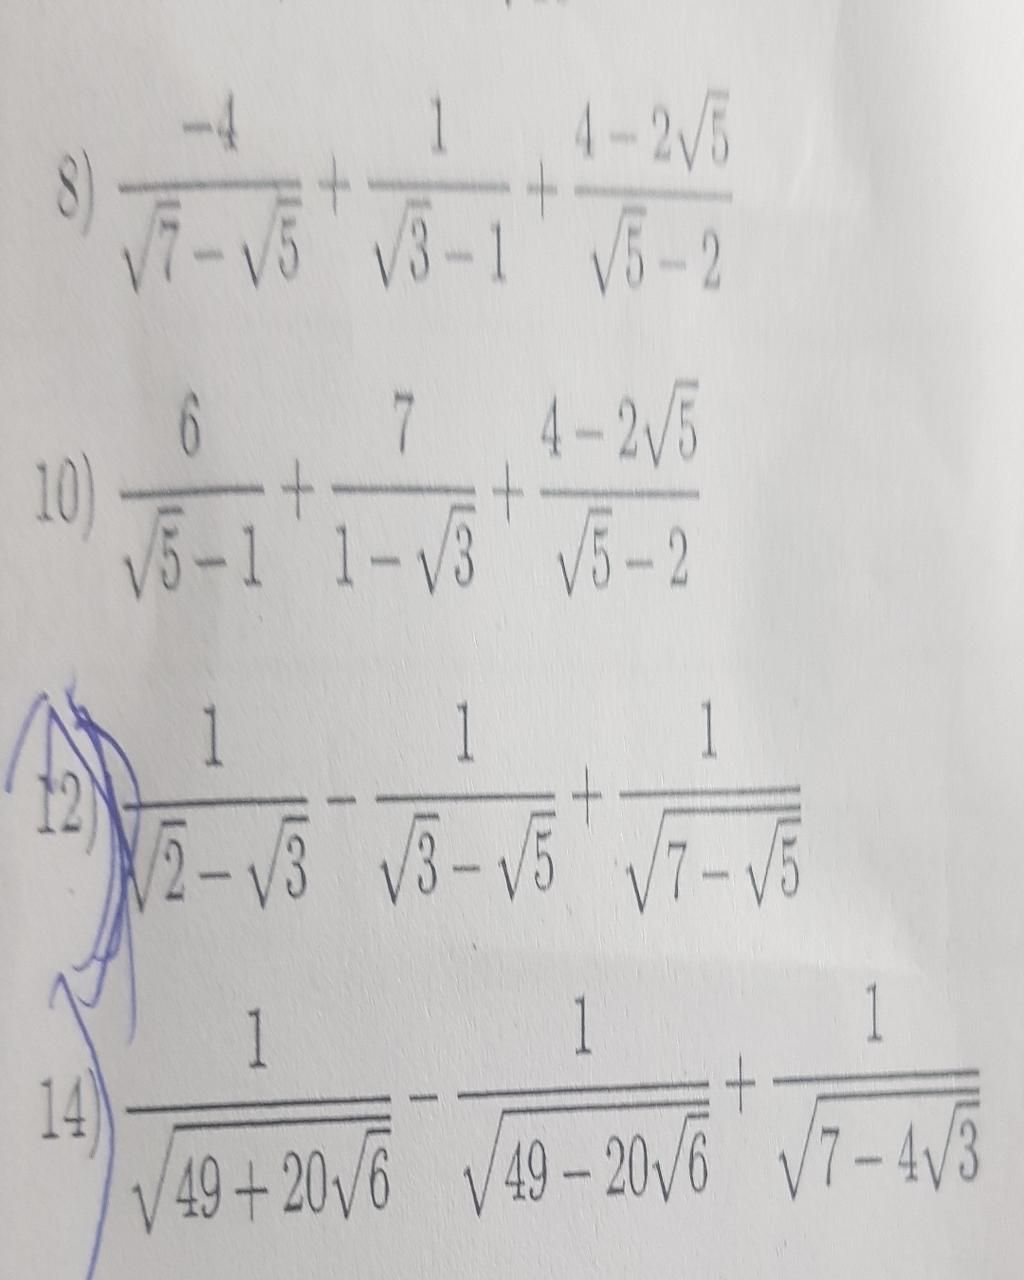 8) \frac{-4}{\sqrt{7}-\sqrt{5}} + \frac{1}{\sqrt{3}-1} + \frac{4-2\sqrt{5}}{\sqrt{5}-2}
10) \frac{6}{\sqrt{5}-1} + \frac{7}{1-\sqrt{3}} + \frac{4-2\sqrt{5}}{\sqrt{5}-2}
12) \frac{1}{\sqrt{2}-\sqrt{3}} - \frac{1}{\sqrt{3}-\sqrt{5}} + \frac{1}{\sqrt{7-\sqrt{5}}}
14) \frac{1}{\sqrt{49+20\sqrt{6}}} - \frac{1}{\sqrt{49-20\sqrt{6}}} + \frac{1}{\sqrt{7-4\sqrt{3}}}